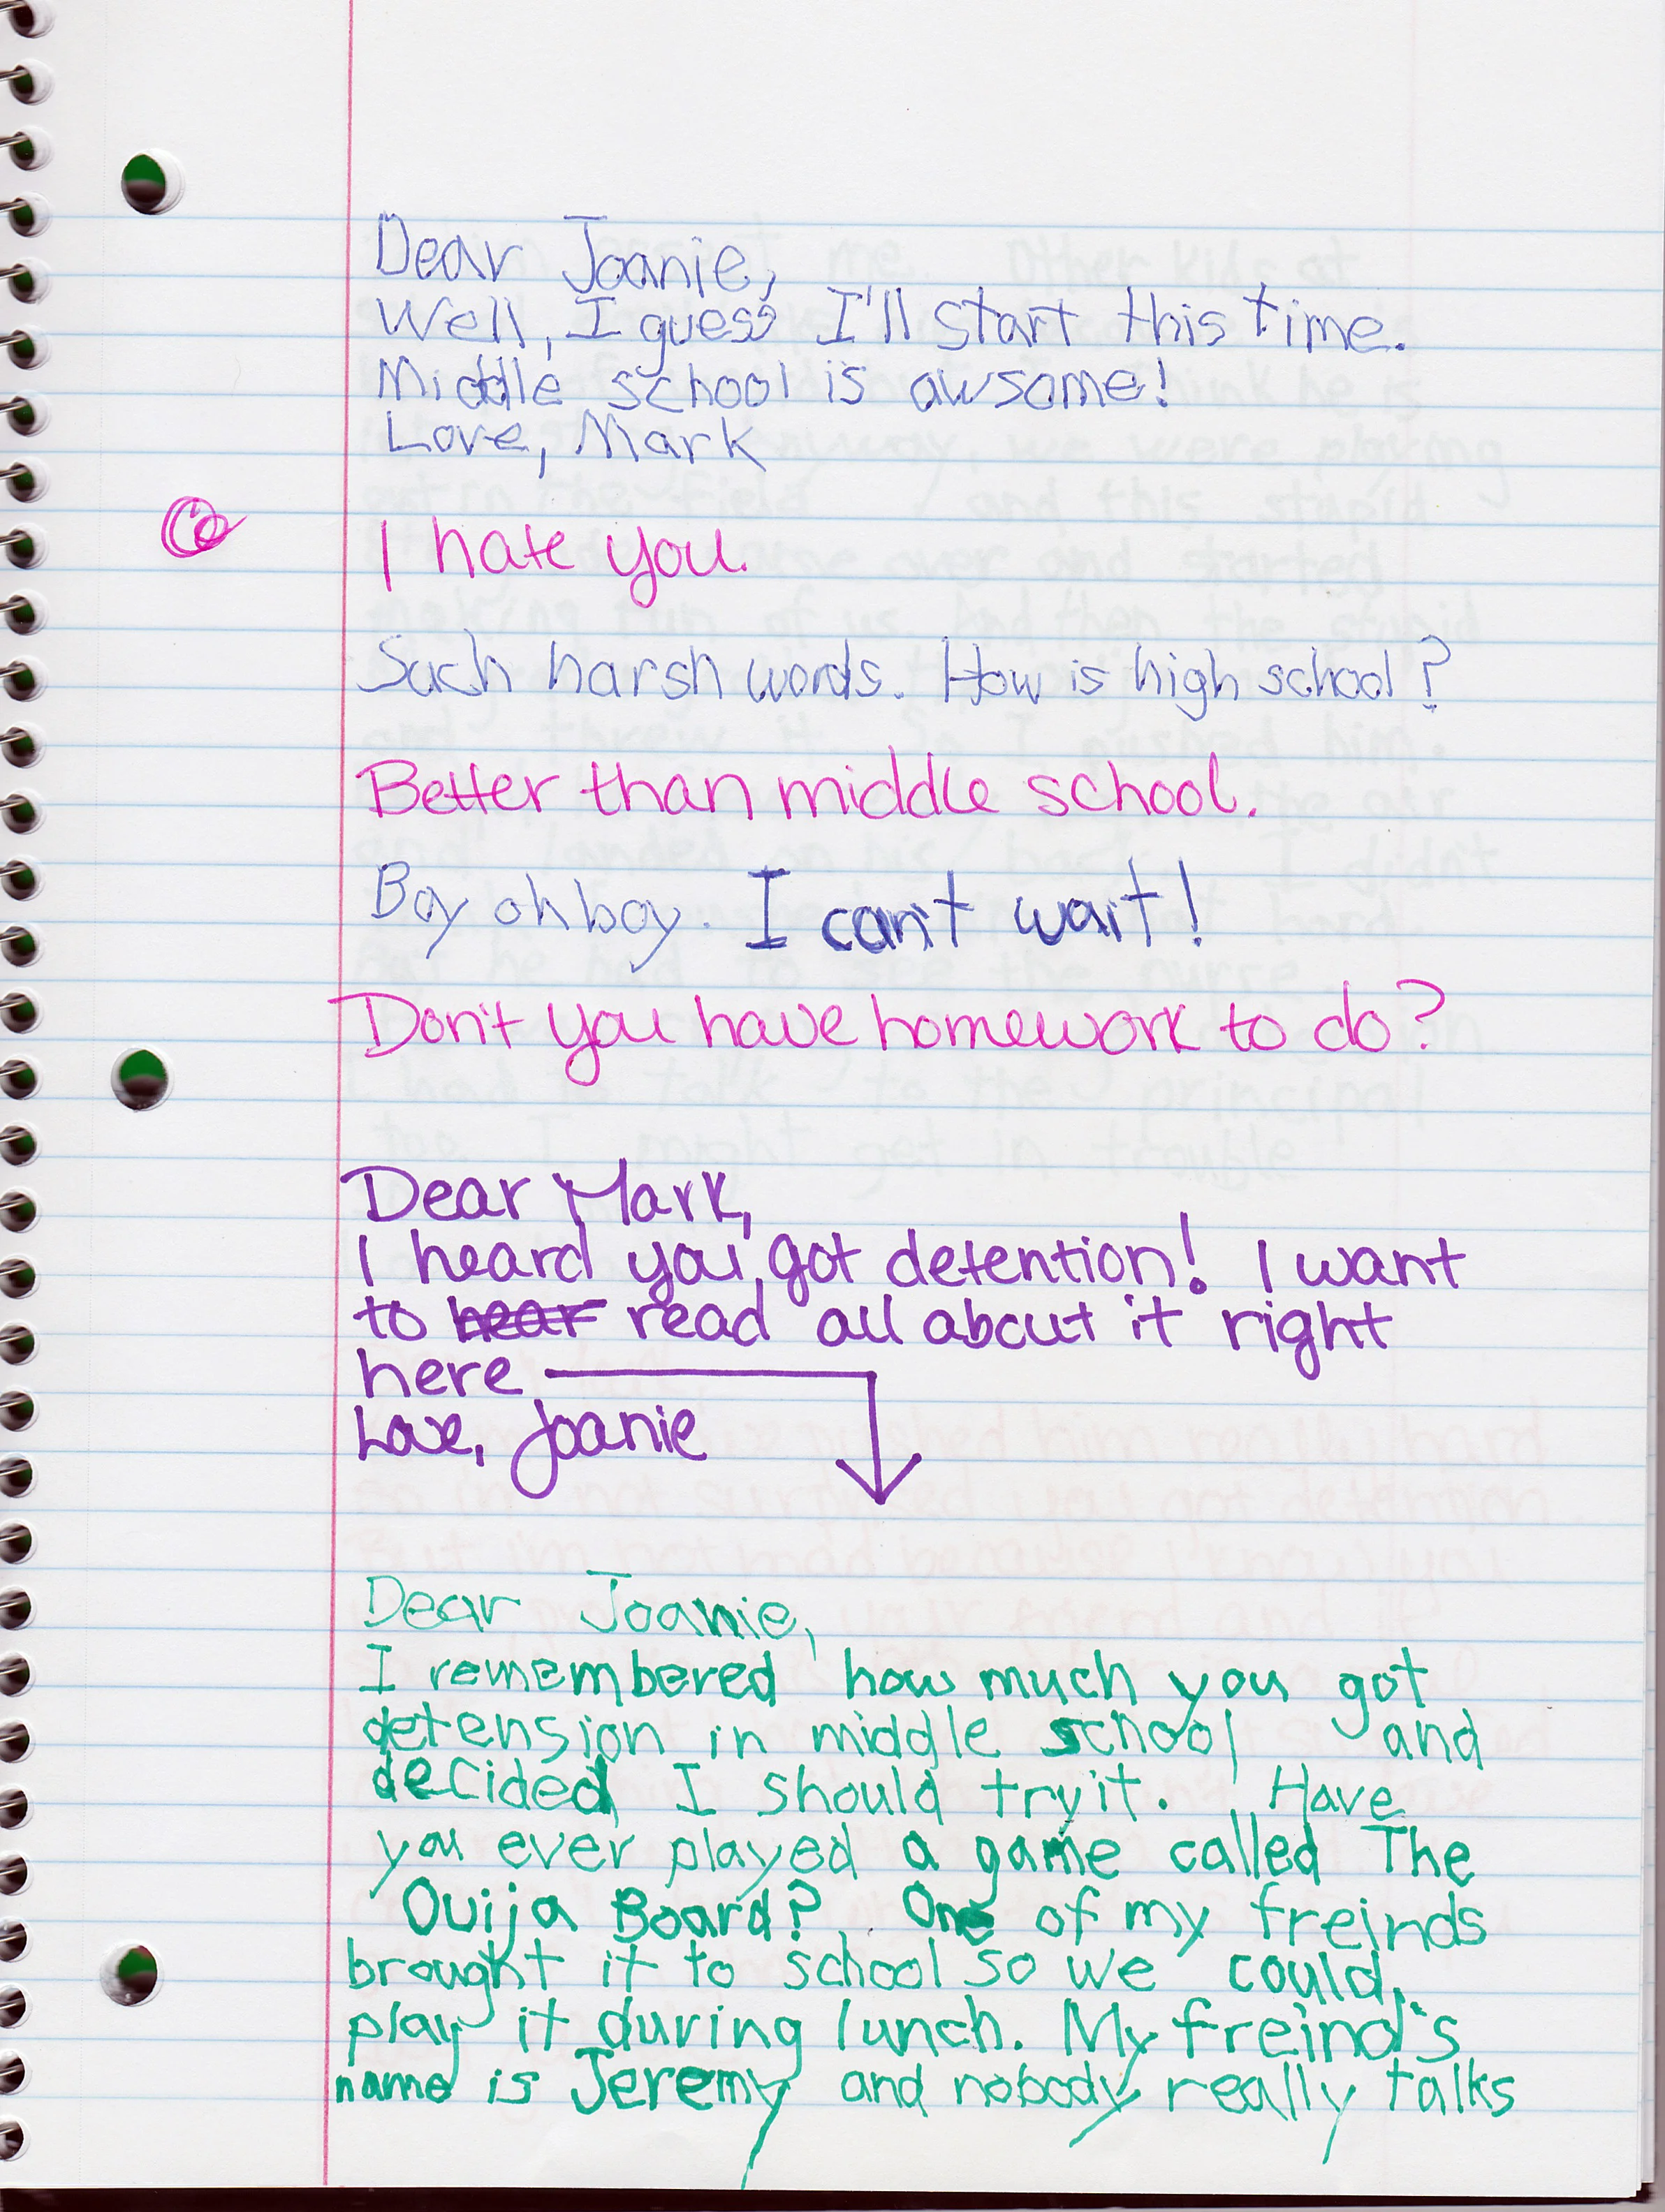 Dear Joanie,
Well, I guess I'll start this time.
Middle school is awsome!
Love, Mark
I hate you.
Such harsh words. How is high school?
Better than middle school.
Boy oh boy. I can't wait!
Don't you have homework to do?
Dear Mark,
I heard you got detention! I want
to hear read all about it right
here
Love, Joanie
Dear Joanie,
I remembered how much you got
detension in middle school and
decided I should try it. Have
you ever played a game called The
Ouija Board? One of my freinds
brought it to school so we could
play it during lunch. My freind's
name is Jeremy and nobody really talks